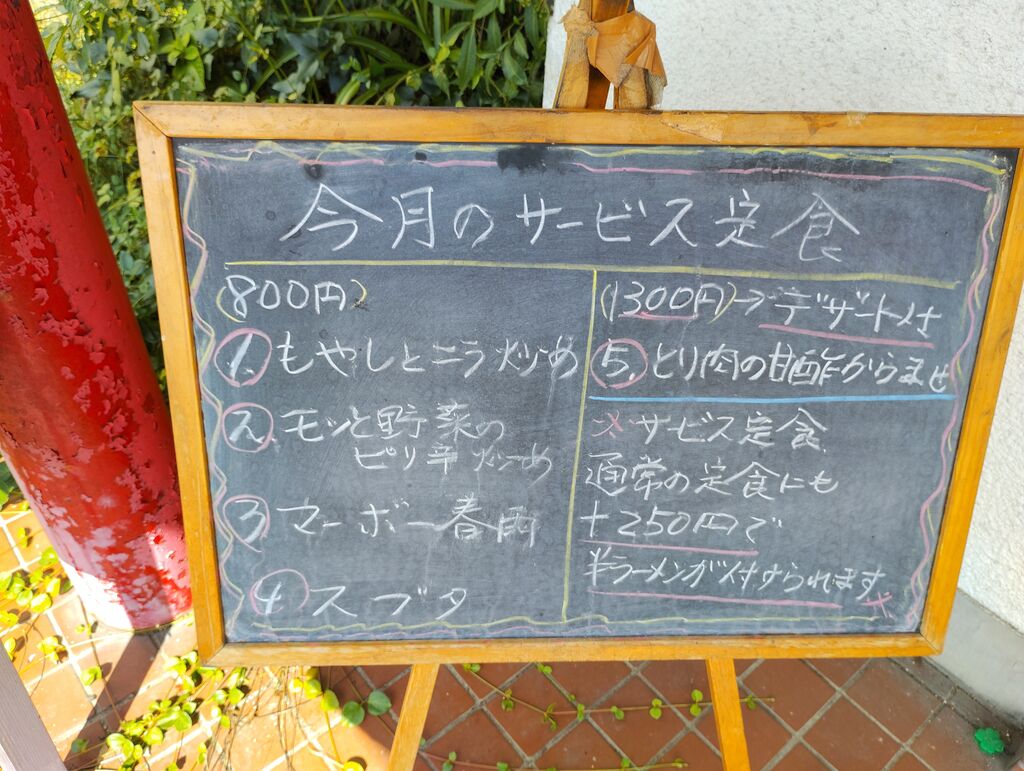 今月のサービス定食
(800円)
1. もやしとニラ炒め
2. モツと野菜の
ピリ辛炒め
3. マーボー春雨
4. スブタ
(1300円)→デザート付
5. とり肉の甘酢からませ
※サービス定食
通常の定食にも
+250円で
半ラーメンが付けられます※